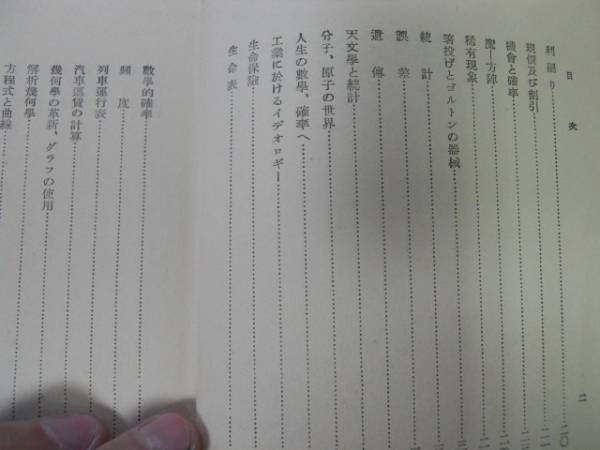 目次
利廻り
現價及び割引
機會と確率
魔一方陣
稀有現象
骰投げとゴルトンの器械
統計
誤差
遺傳
天文學と統計
分子、原子の世界
人生の數學、確率へ
工業に於けるイデオロギー
生命保險
生命表
二
數學的確率
頻度
列車運行表
汽車運賃の計算
幾何學の革新、グラフの使用
解析幾何學
方程式と曲線